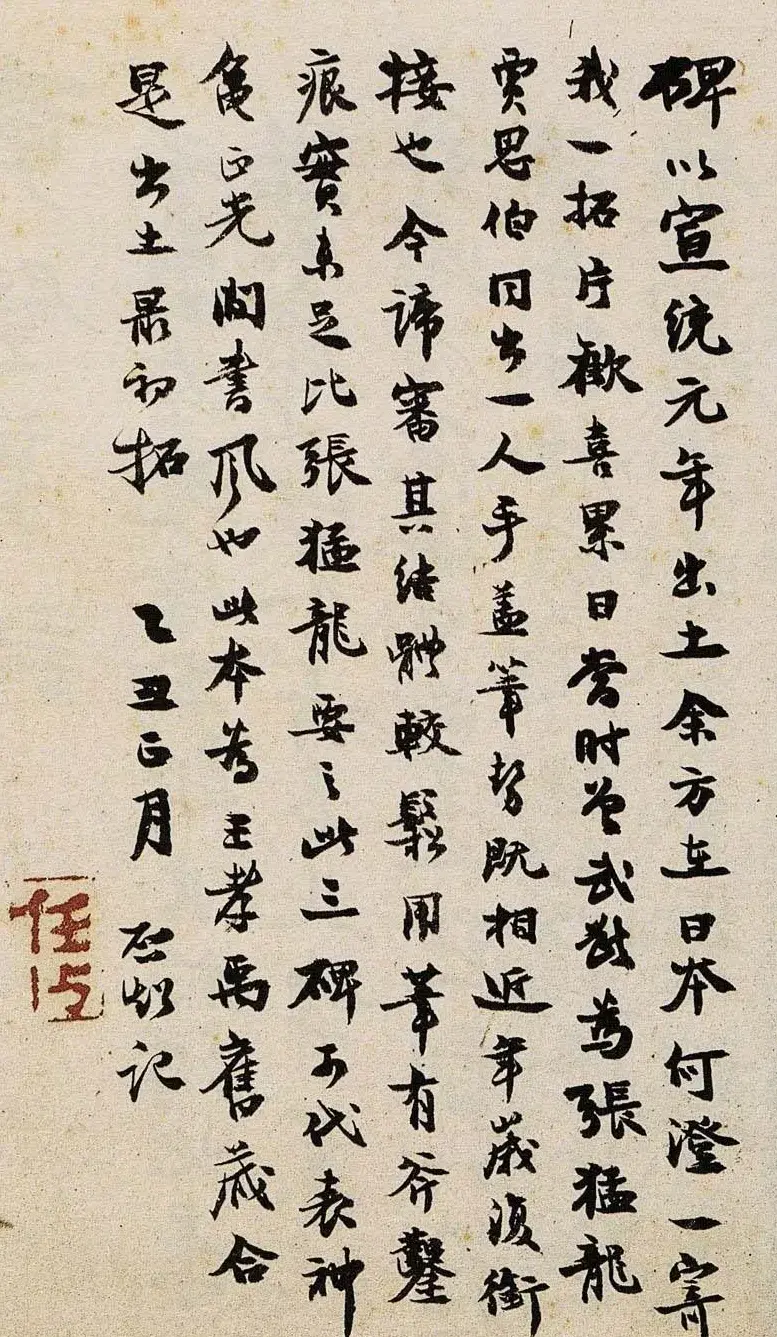 碑以宣統元年出土余方在日本何澄一寄
我一拓片歡喜累日當時曾武斷為張猛龍
賈思伯同出一人手蓋筆勢既相近年歲復銜
接也今諦審其結體較鬆用筆有斧鑿
痕實未足比張猛龍要之此三碑可代表神
龜正光間書風也此本為王孝禹舊藏合
是出土最初拓 乙丑正月 啟超記
任公